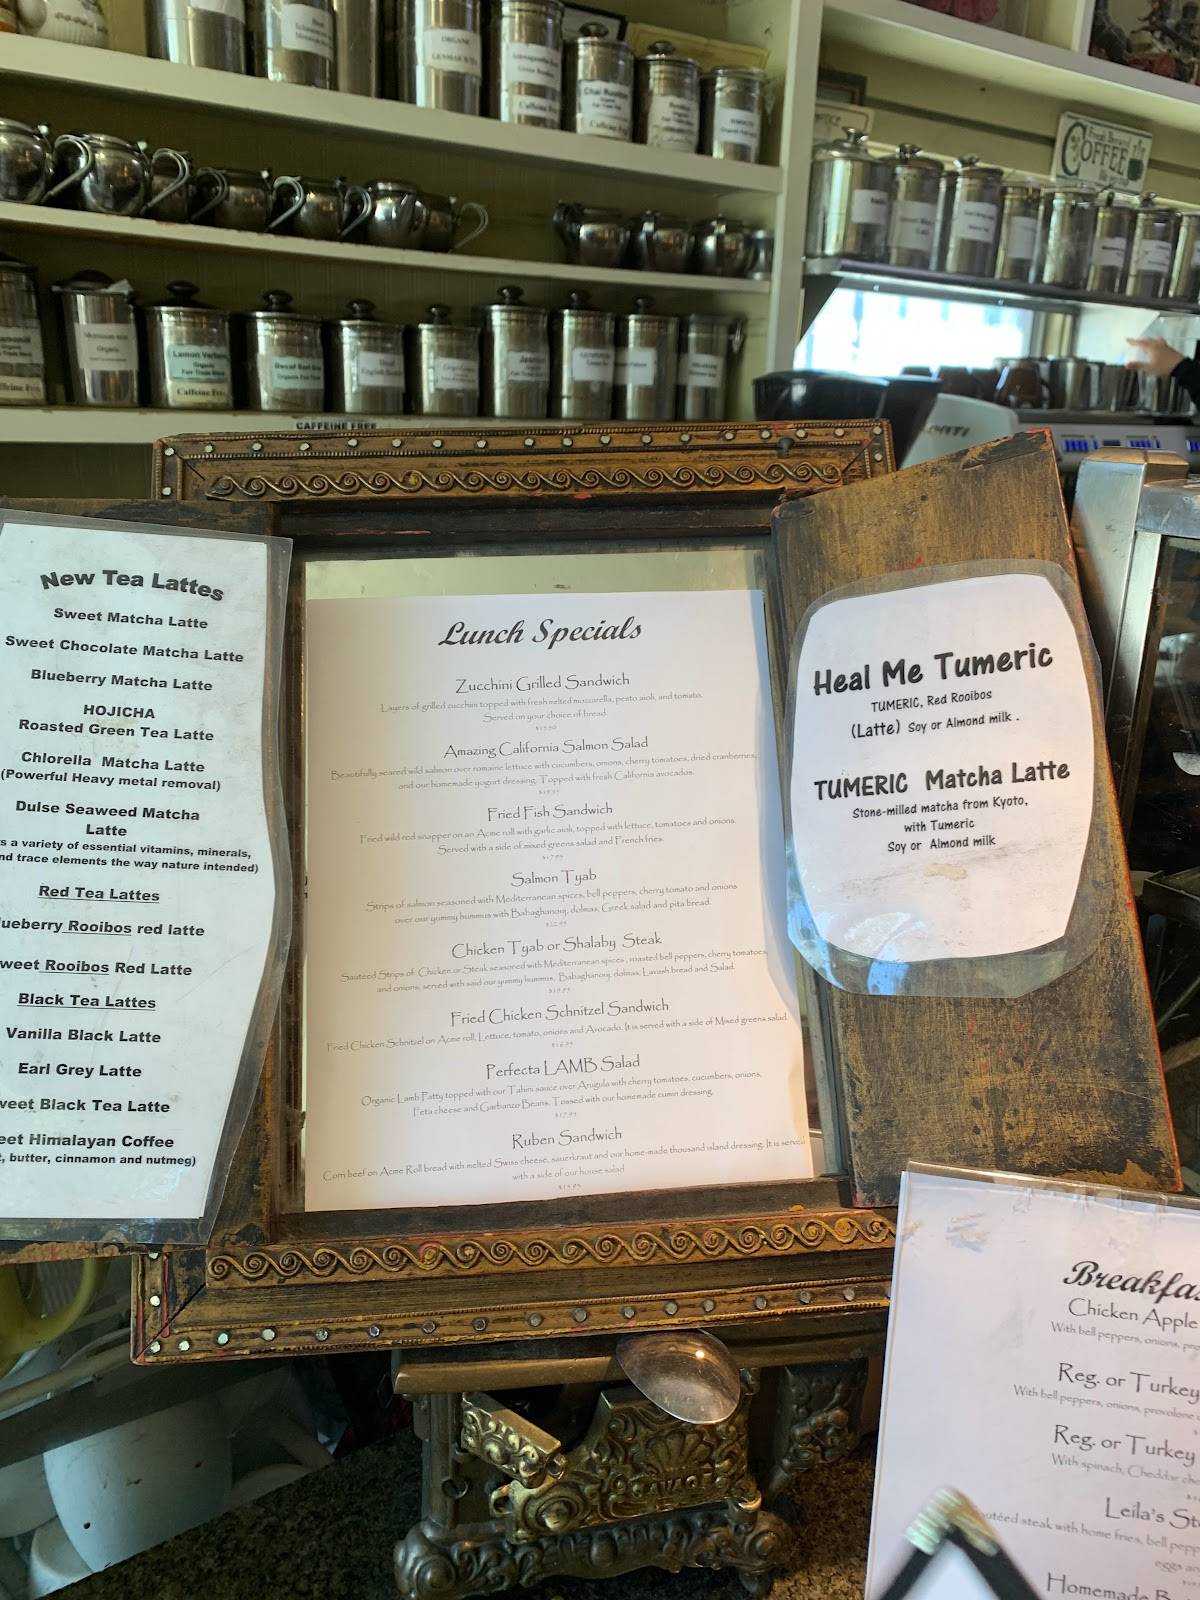 ORGANIC
GENMAICHA
Caffeine Free
Chai Rooibos
Organic
Fair Trade
Caffeine Free
Fresh Brewed
COFFEE
Organic
Lemon Verbena
Organic
Fair Trade
Caffeine Free
Decaf Earl Grey
Organic Fair Trade
English Breakfast
CAFFEINE FREE
New Tea Lattes
Sweet Matcha Latte
Sweet Chocolate Matcha Latte
Blueberry Matcha Latte
HOJICHA
Roasted Green Tea Latte
Chlorella Matcha Latte
(Powerful Heavy metal removal)
Dulse Seaweed Matcha
Latte
s a variety of essential vitamins, minerals,
nd trace elements the way nature intended)
Red Tea Lattes
ueberry Rooibos red latte
weet Rooibos Red Latte
Black Tea Lattes
Vanilla Black Latte
Earl Grey Latte
weet Black Tea Latte
eet Himalayan Coffee
, butter, cinnamon and nutmeg)
Lunch Specials
Zucchini Grilled Sandwich
Layers of grilled zucchini topped with fresh melted mozzarella, pesto aioli, and tomato.
Served on your choice of bread.
Amazing California Salmon Salad
Beautifully seared wild salmon over romaine lettuce with cucumbers, onions, cherry tomatoes, dried cranberries,
and our homemade yogurt dressing. Topped with fresh California avocados.
Fried Fish Sandwich
Fried wild red snapper on an Acme roll with garlic aioli, topped with lettuce, tomatoes and onions.
Served with a side of mixed greens salad and French fries.
$17.95
Salmon Tyab
Strips of salmon seasoned with Mediterranean spices, bell peppers, cherry tomato and onions
over our yummy hummus with Babaghanouj, dolmas, Greek salad and pita bread.
$22.95
Chicken Tyab or Shalaby Steak
Sautéed Strips of Chicken or Steak seasoned with Mediterranean spices , roasted bell peppers, cherry tomatoes,
and onions, served with said our yummy hummus, Babaghanouj, dolmas, Lavash bread and Salad.
$19.95
Fried Chicken Schnitzel Sandwich
Fried Chicken Schnitzel on Acme roll, Lettuce, tomato, onions and Avocado. It is served with a side of Mixed greens salad.
$16.95
Perfecta LAMB Salad
Organic Lamb Patty topped with our Tahini sauce over Arugula with cherry tomatoes, cucumbers, onions,
Feta cheese and Garbanzo Beans. Tossed with our homemade cumin dressing.
$17.95
Ruben Sandwich
Corn beef on Acme Roll bread with melted Swiss cheese, sauerkraut and our home-made thousand island dressing. It is served
with a side of our house salad
$15.95
Heal Me Tumeric
TUMERIC, Red Rooibos
(Latte) Soy or Almond milk .
TUMERIC Matcha Latte
Stone-milled matcha from Kyoto,
with Tumeric
Soy or Almond milk
Breakfas
Chicken Apple
With bell peppers, onions, pro
Reg. or Turkey
With bell peppers, onions, provolone
Reg. or Turkey
With spinach, Cheddar che
Leila's St
autéed steak with home fries, bell pepp
eggs an
Homemade B